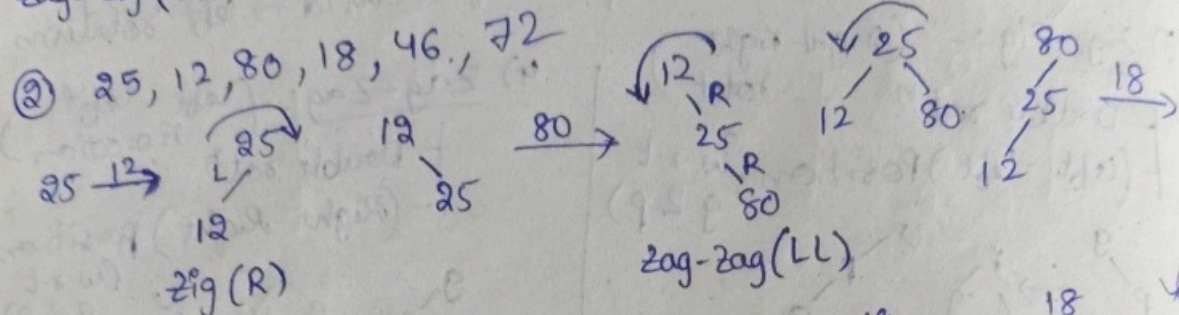 ② 25, 12, 80, 18, 46., 72
25 12→ 25 L 12
12 25
80→
12 R 25 R 80
25 12 80
80 25 12
18→
zig (R)
zag-zag (LL)
18